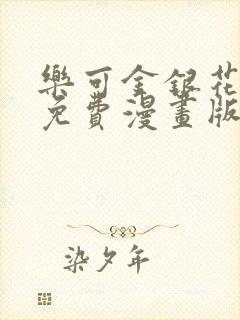 樂可金銀花
免費漫畫版
染夕年